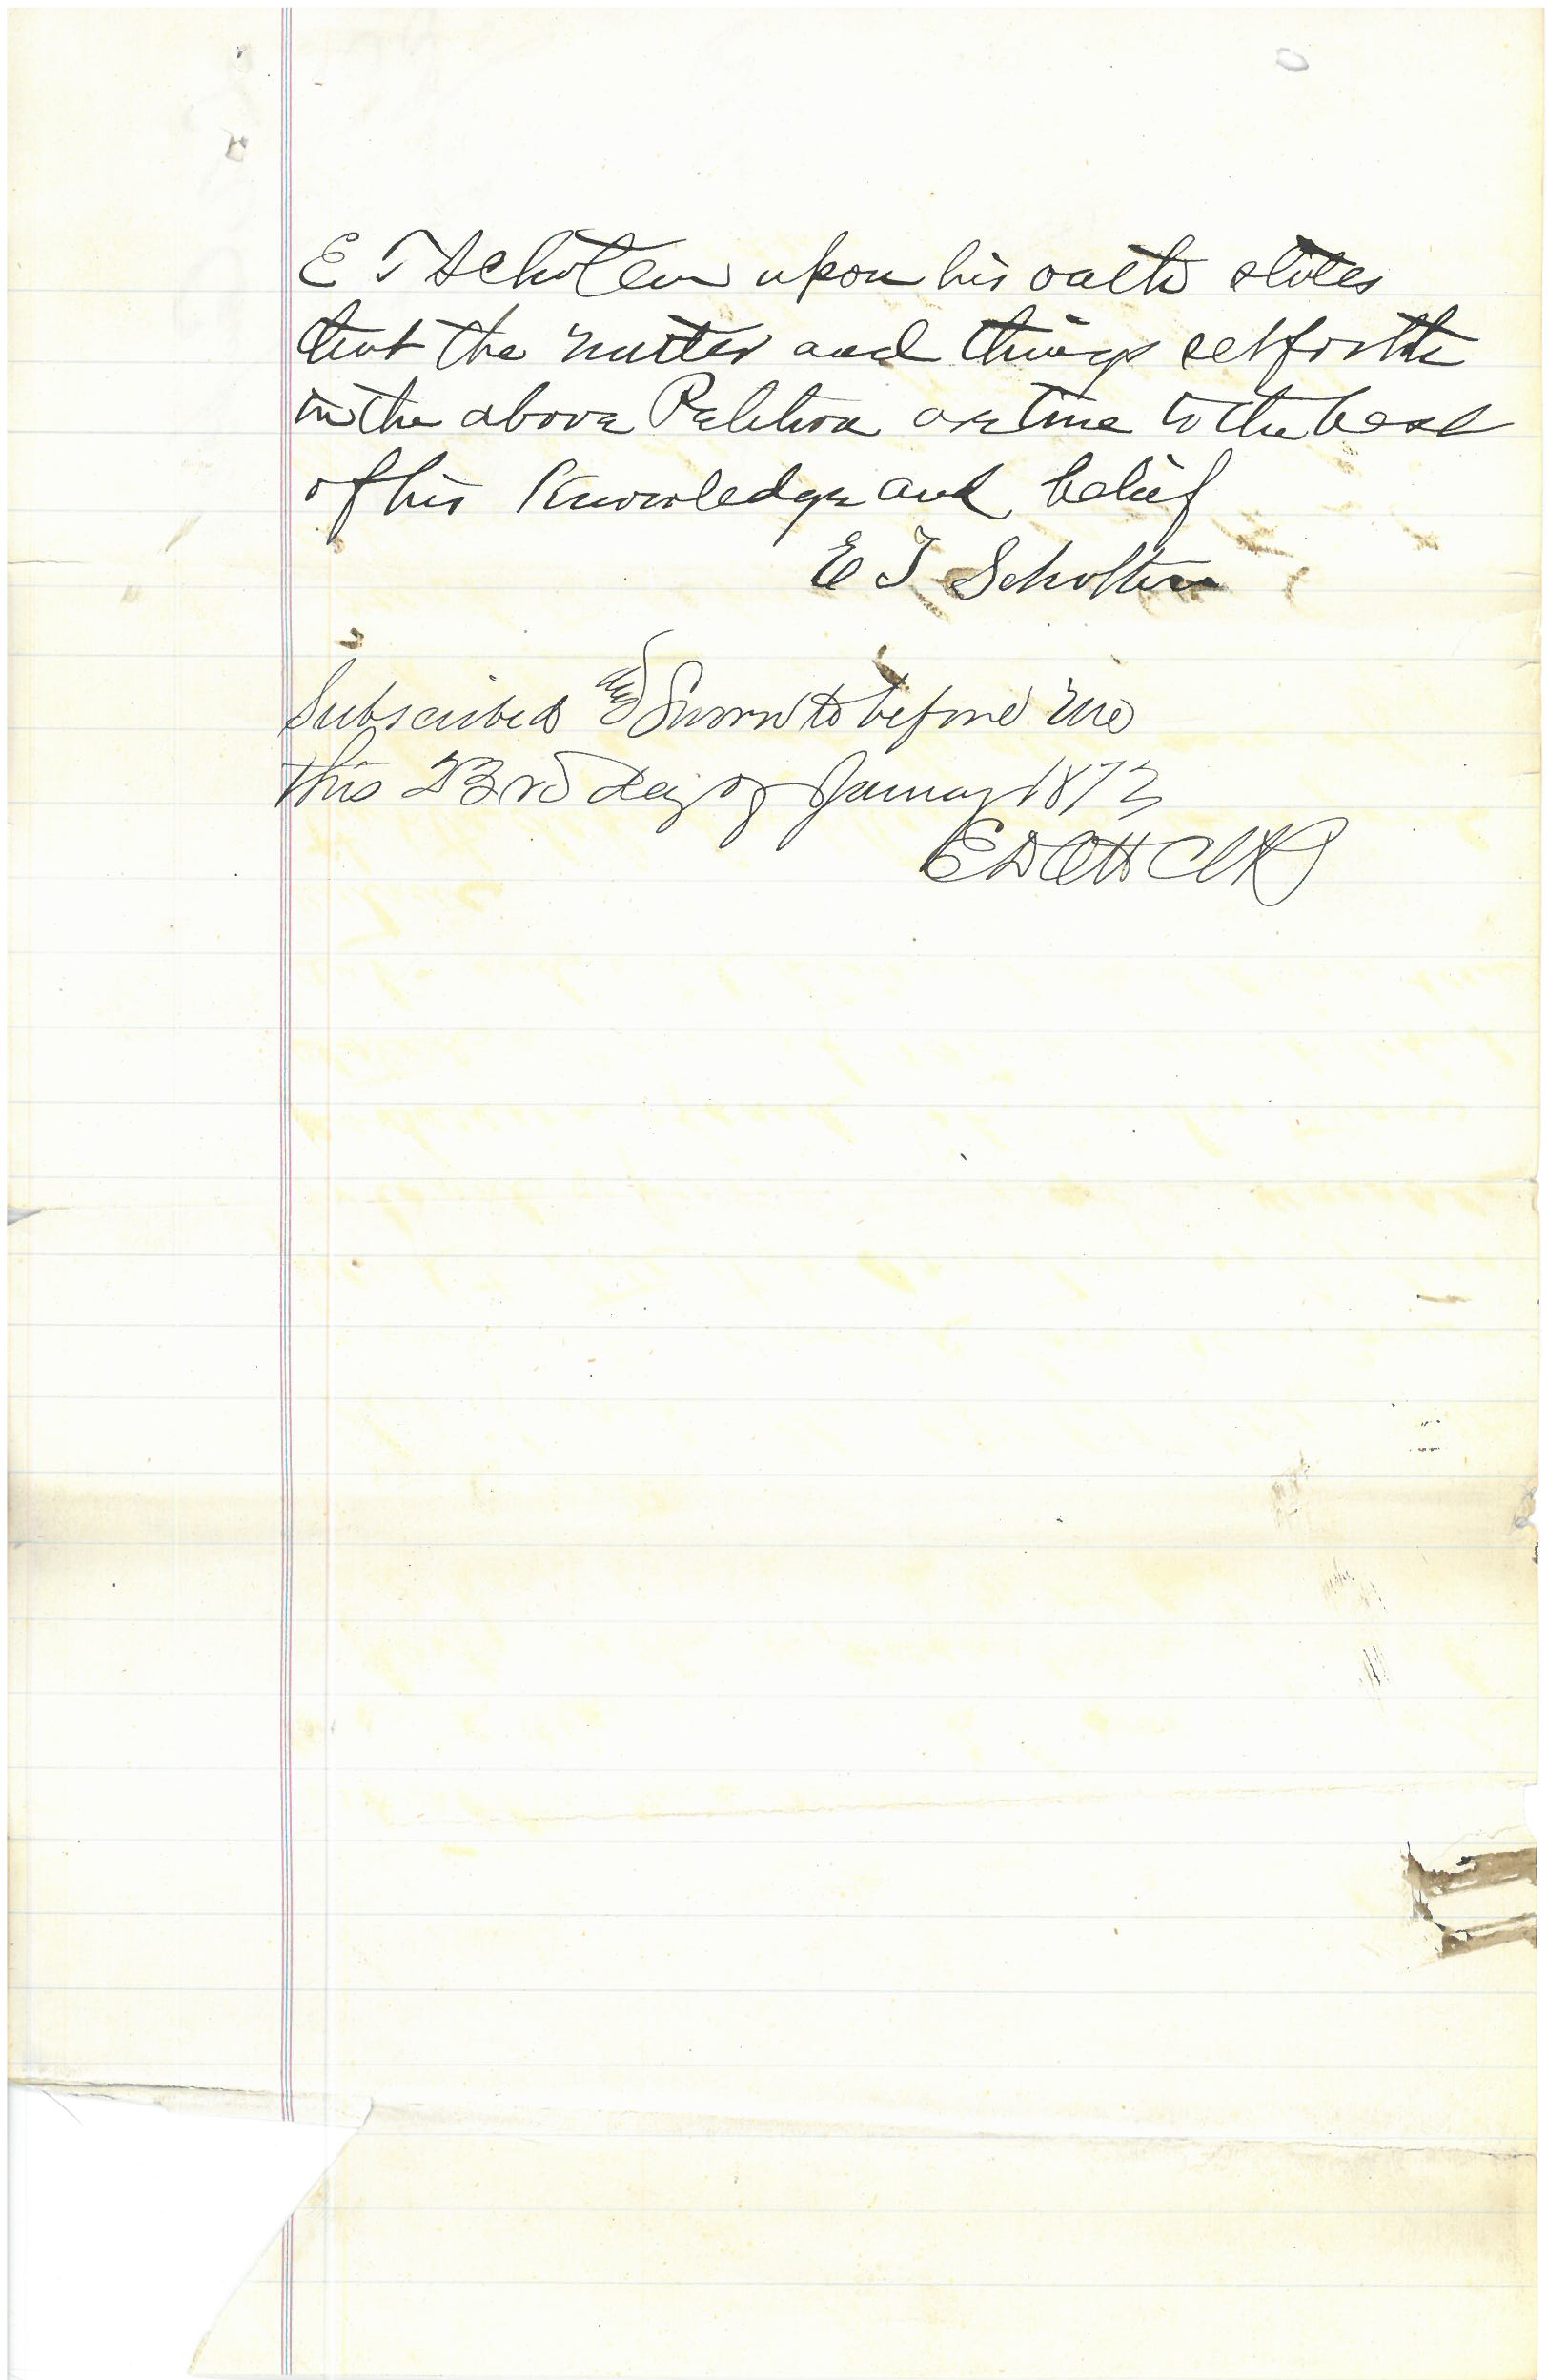 E T Scholten upon his oath states
that the matter and things set forth
in the above Petition are true to the best
of his Knowledge and belief
E T Scholten
Subscribed and Sworn to before me
this 23rd day of January 1873
E D Ott Clk